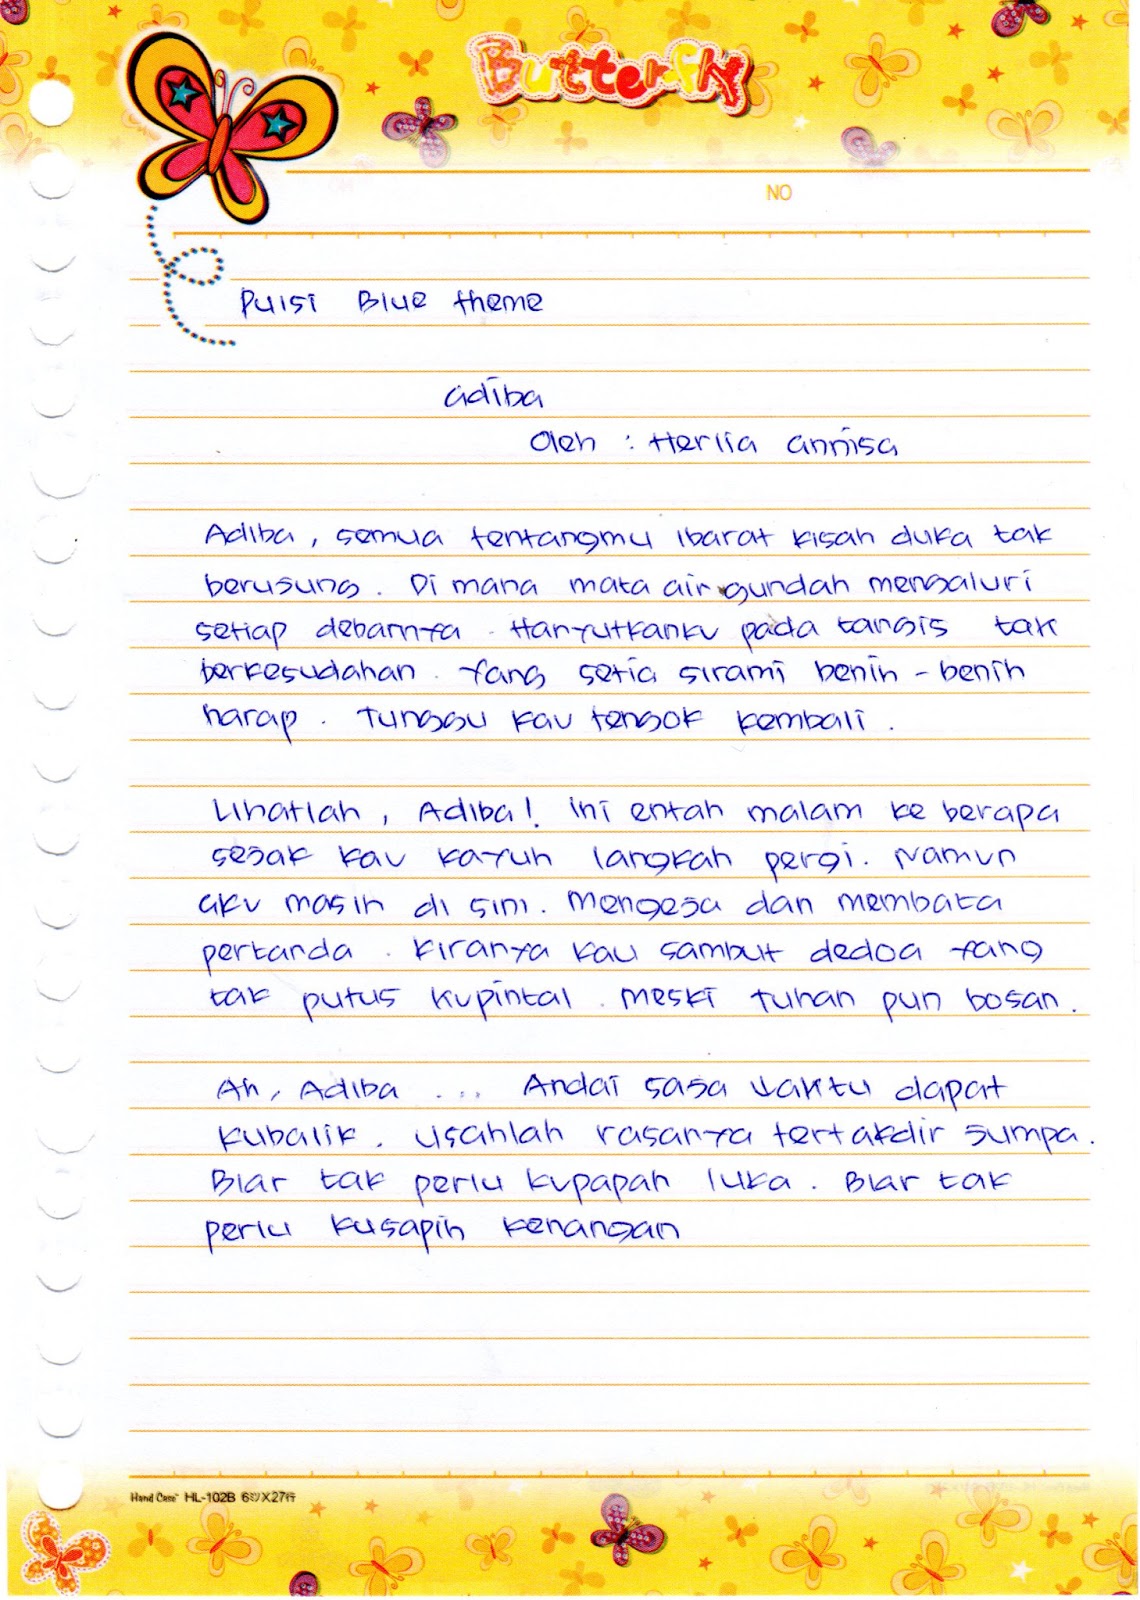 Butterfly
NO
Puisi Blue theme
adiba
Oleh : Herlia annisa
Adiba, semua tentangmu ibarat kisah duka tak
berusung. Di mana mata air gundah mengaluri
setiap debarnya. Hanyutkanku pada tangis tak
berkesudahan. Yang setia sirami benih-benih
harap. Tunggu kau tengok kembali.
Lihatlah, Adiba! ini entah malam ke berapa
sejak kau kayuh langkah pergi. Namun
aku masih di sini. Mengeja dan membaca
pertanda. Kiranya kau sambut dedoa yang
tak putus kupintal. Meski Tuhan pun bosan.
Ah, Adiba ... Andai saja waktu dapat
kubalik. Usahlah rasanya tertakdir jumpa.
Biar tak perlu kupapah luka. Biar tak
perlu kusapih kenangan
Hand Case HL-102B 6つX27行